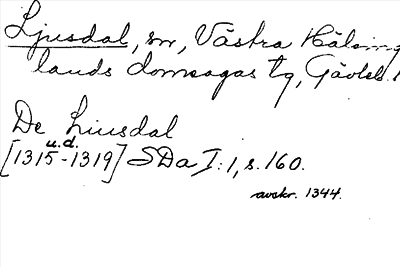 Ljusdal, sn, Västra Hälsing
lands domsagas tg, Gävleb.
De Liusdal
u.d.
[1315-1319] SDa I:1, s. 160.
avskr. 1344.